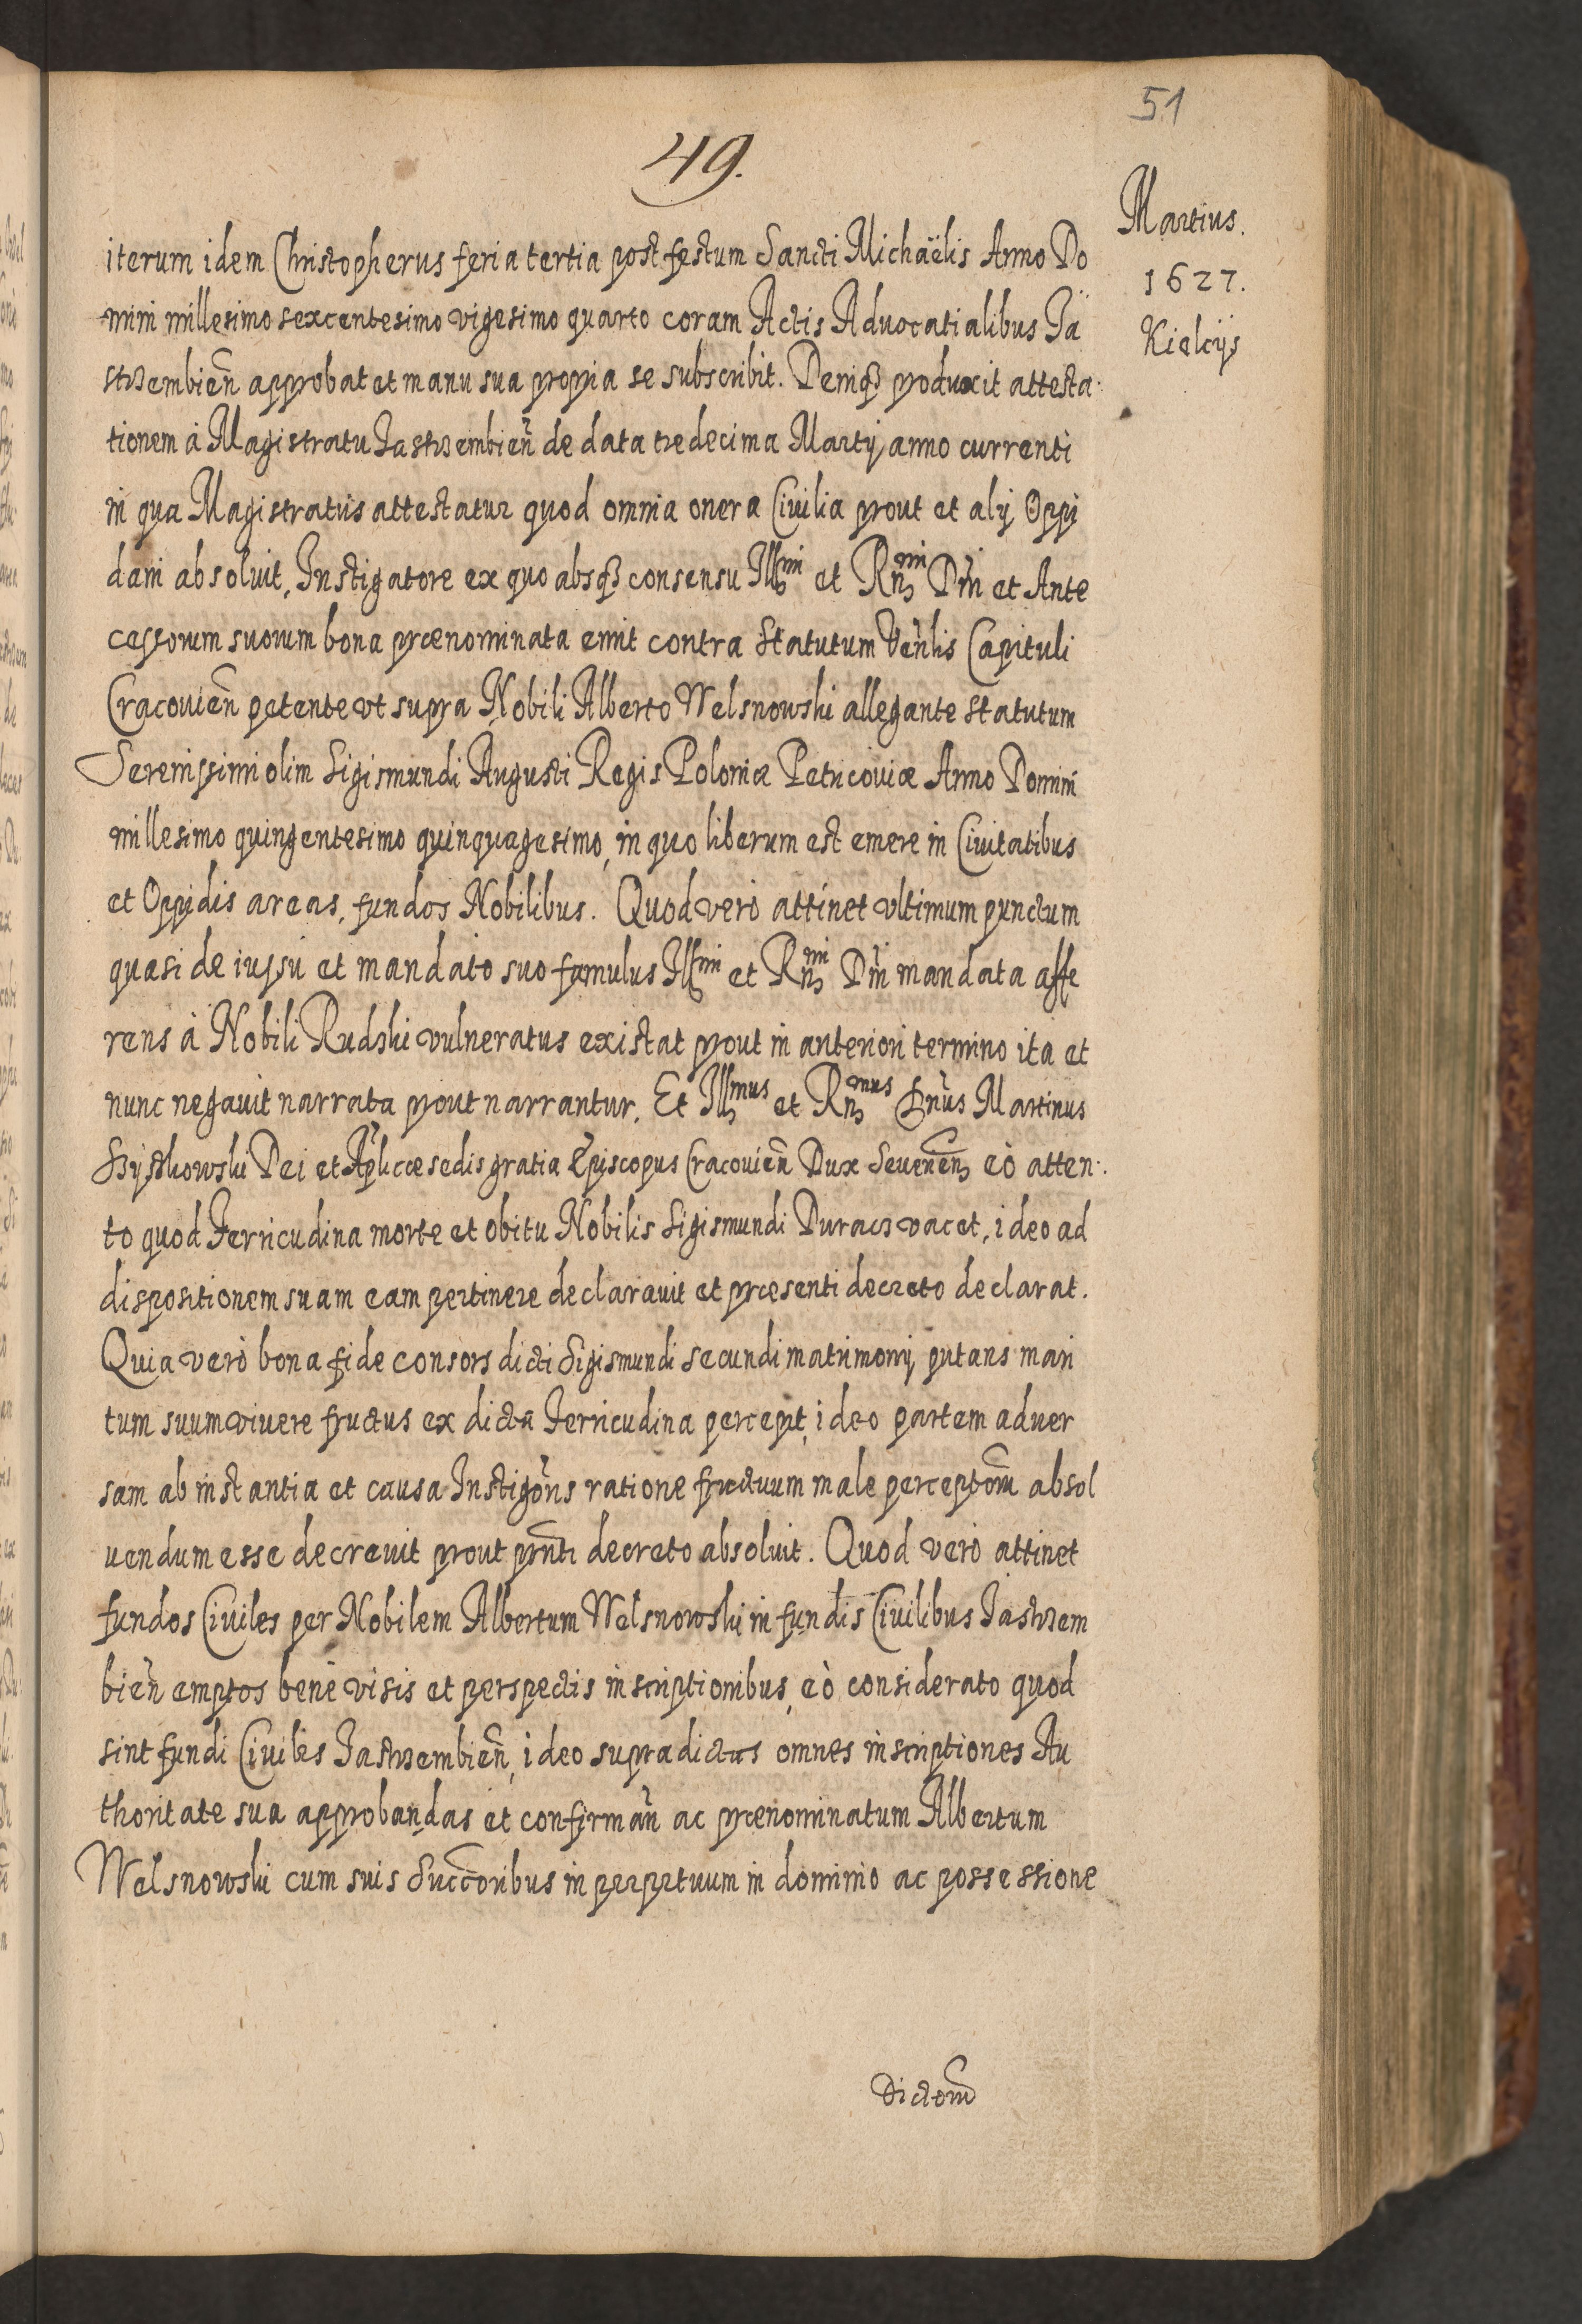 51
49.
Martius.
1627.
Kielcijs
iterum idem Christopherus feria tertia post festum Sancti Michaëlis Anno Do
mini millesimo sexcentesimo vigesimo quarto coram Actis Aduocatialibus Ja
strzembien̄ approbat et manu sua propria se subscribit. Deniqꝫ produxit attesta
tionem à Magistratu Jastrzembien̄ de data tredecima Martij anno currenti
in qua Magistratus attestatur quod omnia onera Ciuilia prout et alij Oppi
dani absoluit, Instigatore ex quo absqꝫ consensu Illmi et Rndmi Dni et Ante
cessorum suorum bona prænominata emit contra Statutum Venlis Capituli
Cracouien̄ petente vt supra Nobili Alberto Welsnowski allegante statutum
Serenissimi olim Sigismundi Augusti Regis Poloniæ Petricouiæ Anno Domini
millesimo quingentesimo quinquagesimo, in quo liberum est emere in Ciuitatibus
et Oppidis areas, fundos Nobilibus. Quod verò attinet vltimum punctum
quasi de iussu et mandato suo famulus Illmi et Rndmi Dni mandata affe
rens à Nobili Rudzki vulneratus existat prout in anteriori termino ita et
nunc negauit narrata prout narrantur. Et Illmus et Rndmus Dnus Martinus
Szyszkowski Dei et Aplicæ sedis gratia Episcopus Cracouien̄ Dux Seuerien̄ eò atten
to quod Ferricudina morte et obitu Nobilis Sigismundi Duracz vacet, ideo ad
dispositionem suam eam pertinere declarauit et præsenti decreto declarat.
Quia verò bona fide consors dicti Sigismundi secundi matrimonij putans mari
tum suum viuere fructus ex dicta Ferricudina percepit, ideo partem aduer
sam ab instantia et causa Instigoris ratione fructuum male perceptorū absol
uendum esse decreuit prout pnti decreto absoluit. Quod verò attinet
fundos Ciuiles per Nobilem Albertum Welsnowski in fundis Ciuilibus Jastrzem
bien̄ emptos benè visis et perspectis inscriptionibus, eò considerato quod
sint fundi Ciuiles Jastrzembien̄, ideo supradictas omnes inscriptiones Au
thoritate sua approbandas et confirman̄ ac prænominatum Albertum
Welsnowski cum suis Succoribus in perpetuum in dominio ac possessione
Dictorū